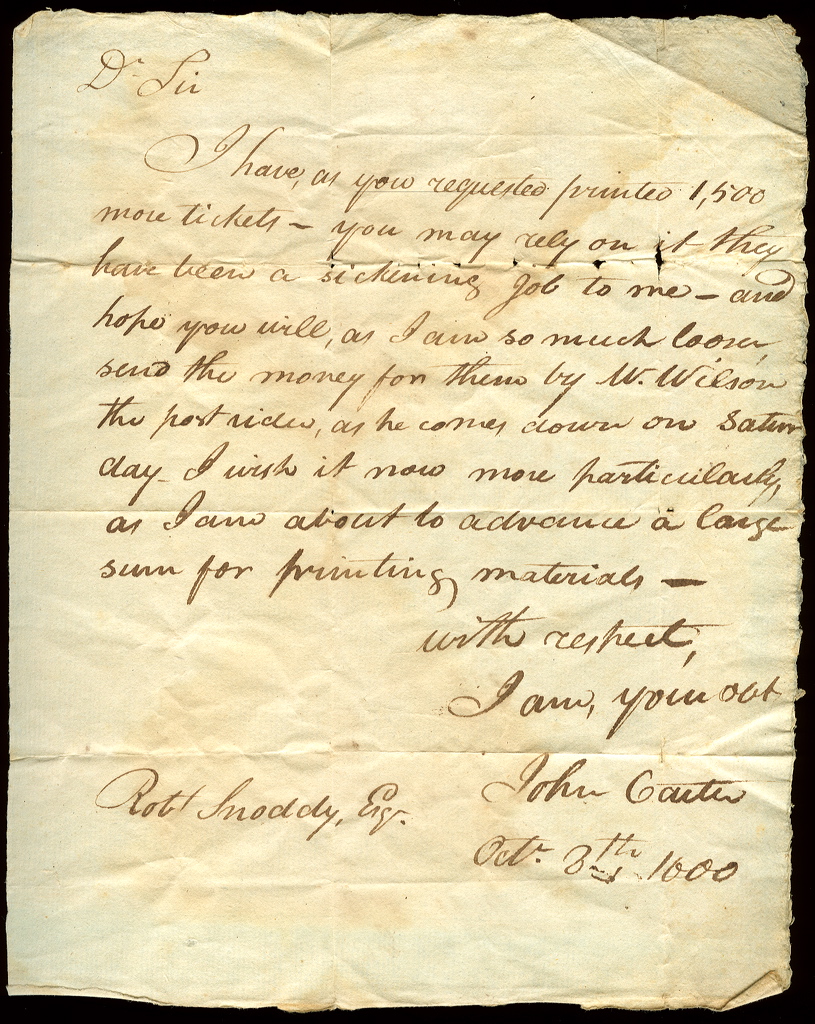 Dr Sir
I have, as you requested printed 1,500
more tickets – you may rely on it they
have been a sickening job to me – and
hope you will, as I am so much looser,
send the money for them by W. Wilson
the post rider, as he comes down on Satur
day – I wish it now more particularly,
as I am about to advance a large
sum for printing materials –
with respect,
I am, your obt
John Carter
Robt Snoddy, Esqr.
Octr. 8th 1800